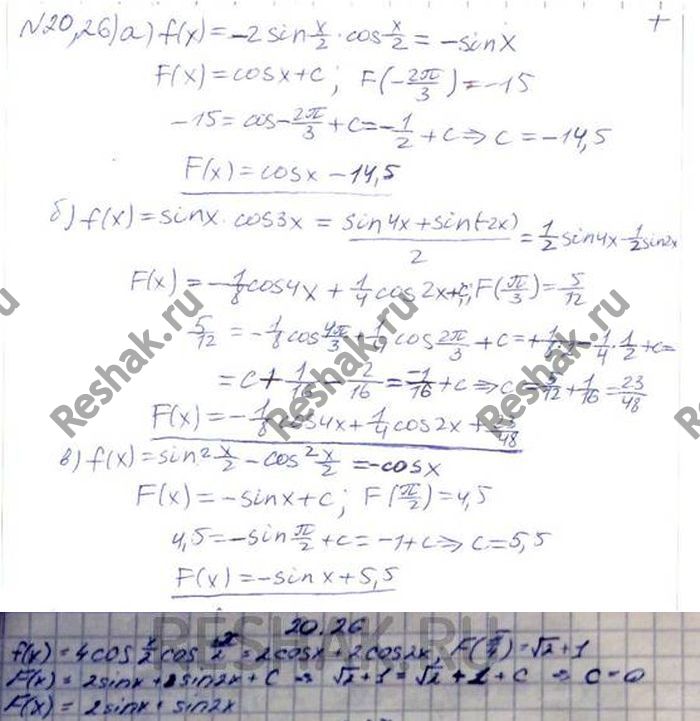 N20,26) а) f(x) = -2 sin x/2 · cos x/2 = -sin x +
F(x) = cos x + c ; F(-2π/3) = -15
-15 = cos -2π/3 + c = -1/2 + c ⇒ c = -14,5
F(x) = cos x - 14,5
б) f(x) = sin x · cos 3x = (sin 4x + sin(-2x))/2 = 1/2 sin 4x - 1/2 sin 2x
F(x) = -1/8 cos 4x + 1/4 cos 2x + c; F(π/3) = 5/12
5/12 = -1/8 cos 4π/3 + 1/4 cos 2π/3 + c = + 1/8·2 - 1/4 · 1/2 + c =
= c + 1/16 - 2/16 = -1/16 + c ⇒ c = 5/12 + 1/16 = 23/48
F(x) = -1/8 cos 4x + 1/4 cos 2x + 23/48
в) f(x) = sin² x/2 - cos² x/2 = -cos x
F(x) = -sin x + c ; F(π/2) = 4,5
4,5 = -sin π/2 + c = -1 + c ⇒ c = 5,5
F(x) = -sin x + 5,5
20.26
f(x) = 4 cos x/2 cos 3x/2 = 2cosx + 2cos2x, F(π/4) = √2 + 1
F(x) = 2sinx + sin2x + C ⇒ √2 + 1 = √2 + 1 + C ⇒ C = 0
F(x) = 2sinx + sin2x
Reshak.ru
Reshak.ru
Reshak.ru
Reshak.ru
RESHAK.RU